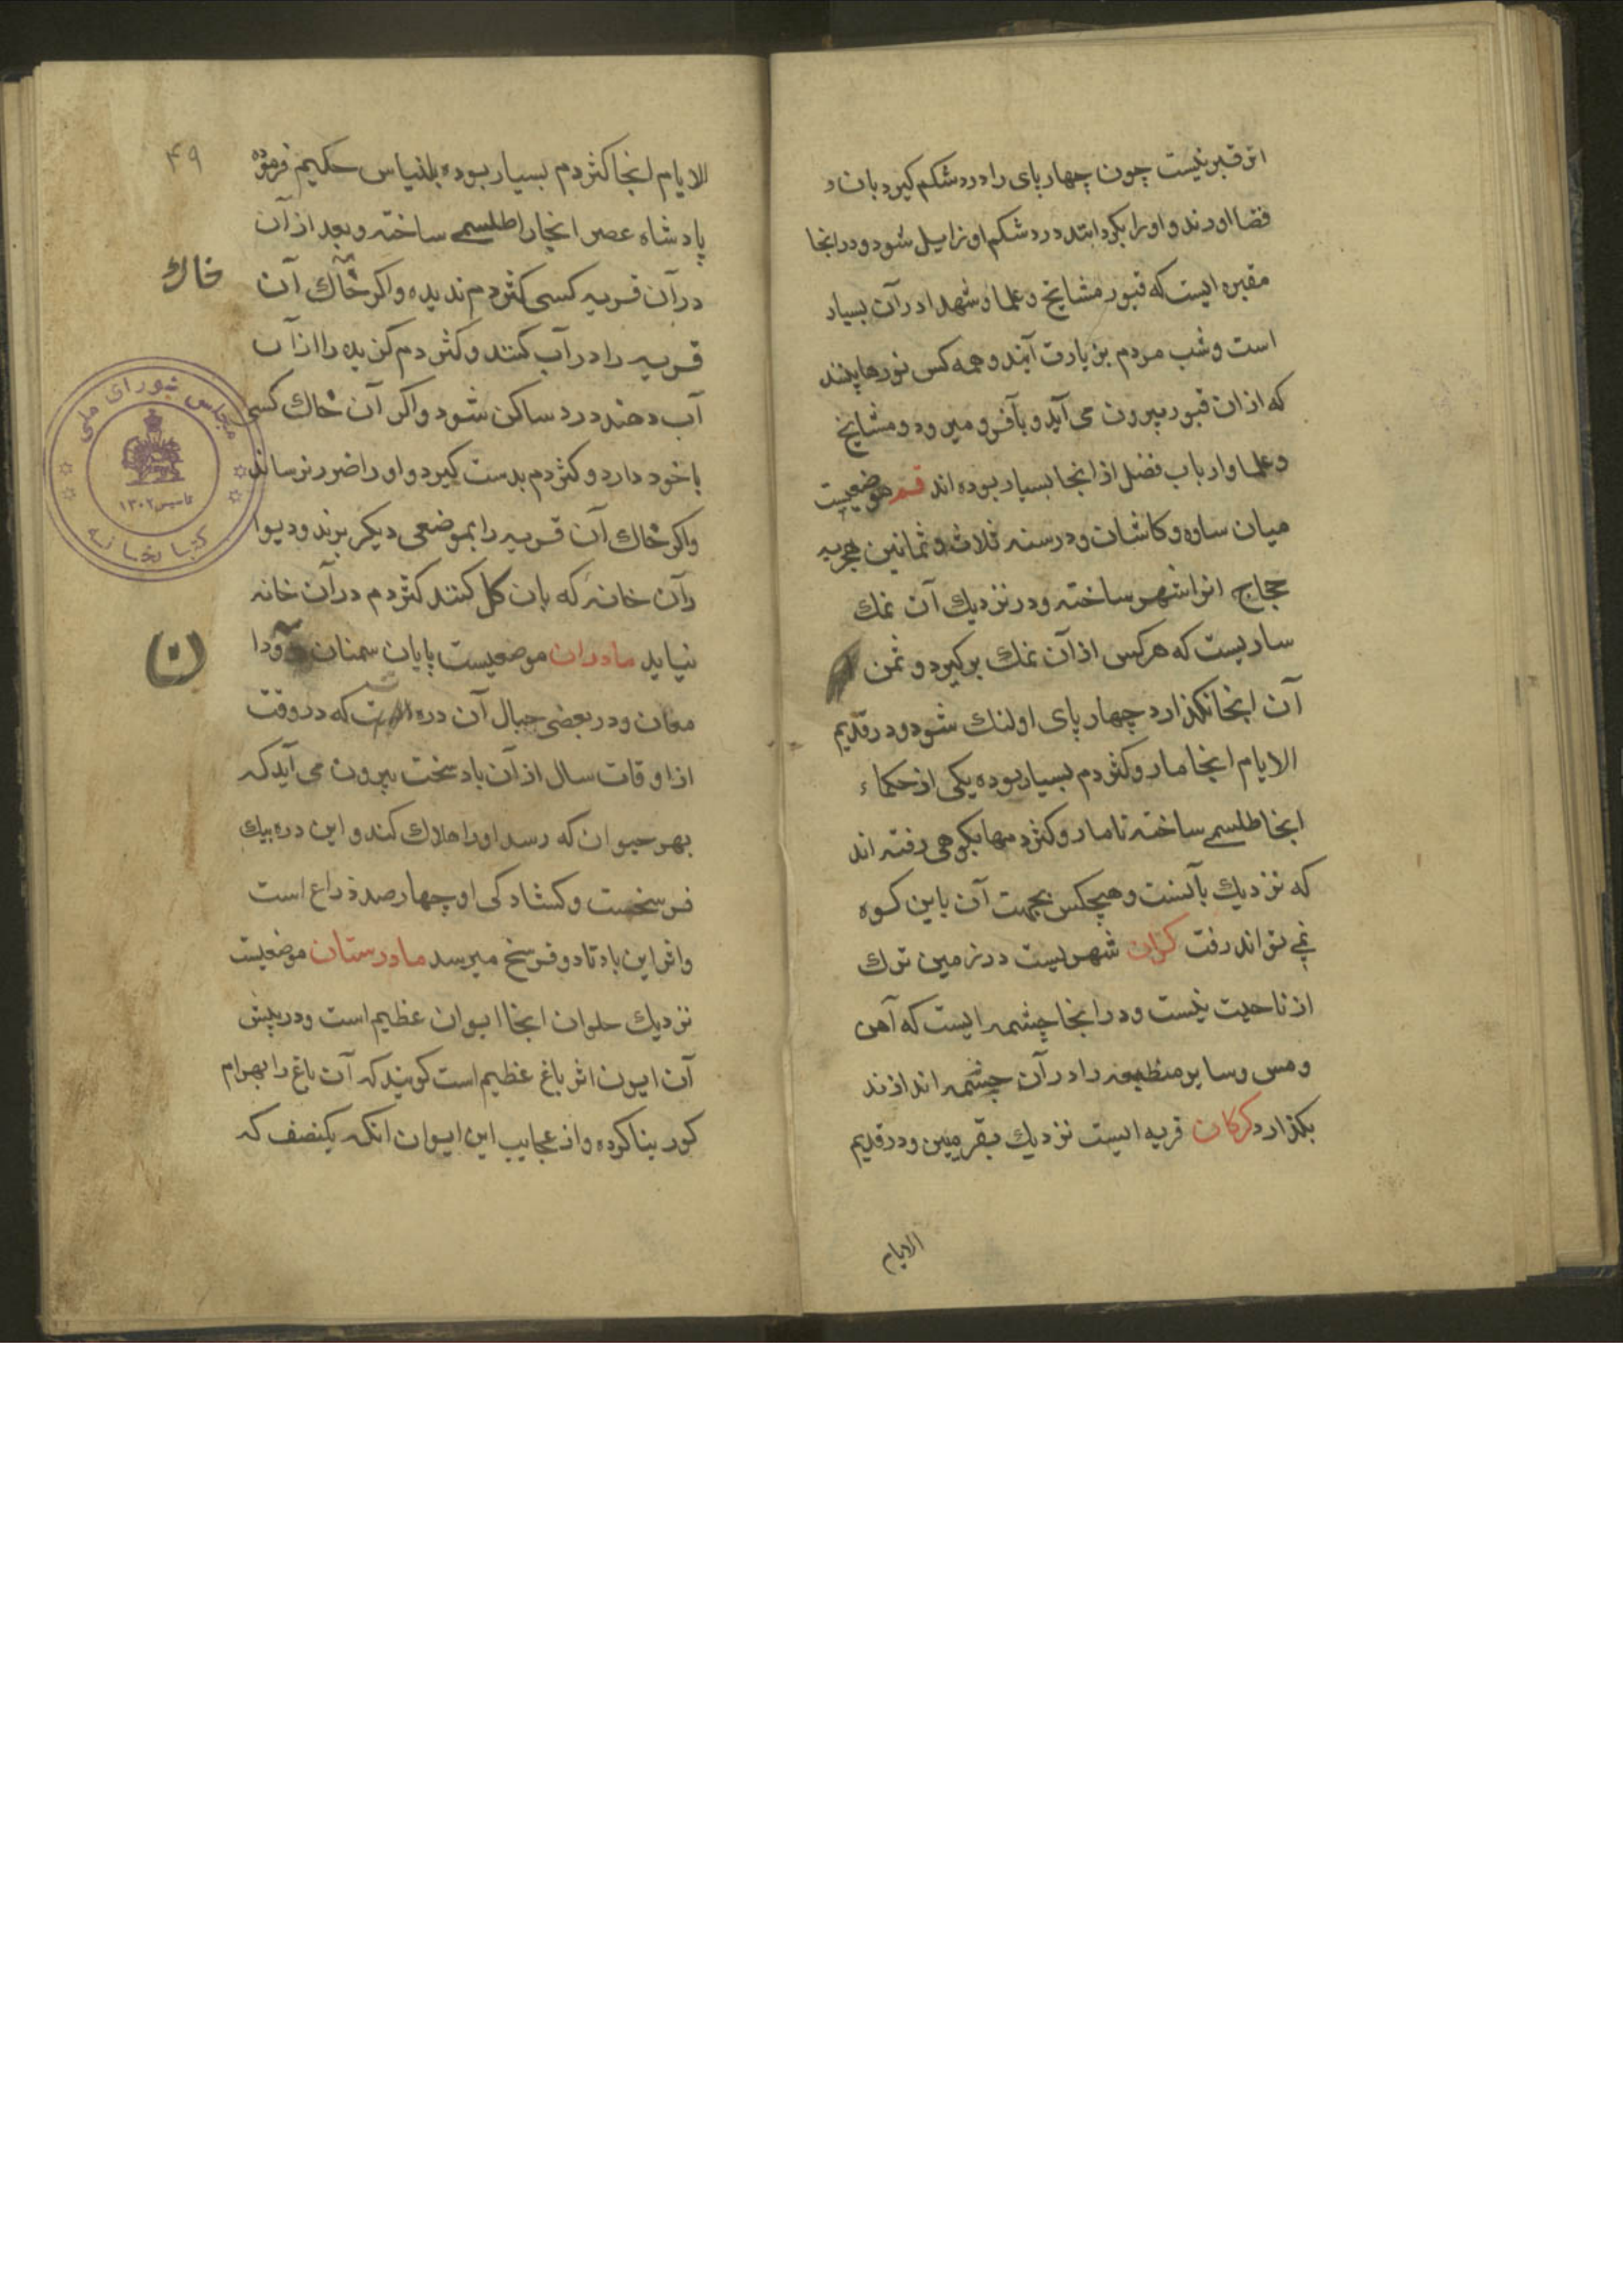 اثر قبر نیست چون چهار پای را درد شکم کیرد بان
فضا اورند و او را بکردانند درد شکم او زایل شود و در انجا
مقبره ایست که قبور مشایخ و علما و شهدا در آن بسیار
است و شب مردم بزیارت آیند و همه کس نورها بینند
که از ان قبور بیرون می آید و بآفر و میرود و مشایخ
و علما و ارباب فضل از انجا بسیار بوده اند قم موضعیست
میان ساوه و کاشان و در سنه ثلاث و ثمانین هجریه
حجاج انرا شهر ساخته و در نزدیك آن نمك
ساریست که هر کس از آن نمك بر کیرد و ثمن
آن انجا نکذارد چهار پای او لنك شود و در قدیم
الایام انجا مار و کژدم بسیار بوده یکی از حکماء
انجا طلسمی ساخته تا مار و کژدمها بکوهی رفته اند
که نزدیك بآنست و هیچکس بجهت آن باین کوه
نمی تواند رفت کران شهریست در زمین ترك
از ناحیت نیست و در انجا چشمه ایست که آهن
و مس و سایر منطبعه را در آن چشمه اندازند
بکذارد کرکان قریه ایست نزدیك بقرمیین و در قدیم
الایام
۴۹
الایام انجا کژدم بسیار بوده بلنیاس حکیم فرموده
پادشاه عصر انجا را طلسمی ساخته و بعد از آن
در آن قریه کسی کژدم ندیده و اکر خاك آن
خاك
قریه را در آب کنند و کژدم کزیده را از آن
آب دهند درد ساکن شود و اکر آن خاك کسی
با خود دارد و کژدم بدست کیرد و او را ضرر نرساند
و اکر خاك آن قریه را بموضعی دیکر برند و دیوا
رآن خانه که بان کل کنند کژدم در آن خانه
نیاید مادران موضعیست پایان سمنان و دا
(ن)
مغان و در بعضی جبال آن دره است که در وقت
از اوقات سال از آن باد سخت بیرون می آید که
بهر حیوان که رسد او را هلاك کند و این دره بیك
فرسخست و کشادکی او چهار صد ذراع است
و اثر این باد تا دو فرسخ میرسد مادرستان موضعیست
نزدیك حلوان انجا ایوان عظیم است و در پیش
آن ایون اثر باغ عظیم است کویند که آن باغ را بهرام
کور بنا کرده و از عجایب این ایوان انکه یکنصف که
مجلس شورای ملی
تاسیس ۱۳۰۲
کتابخانه